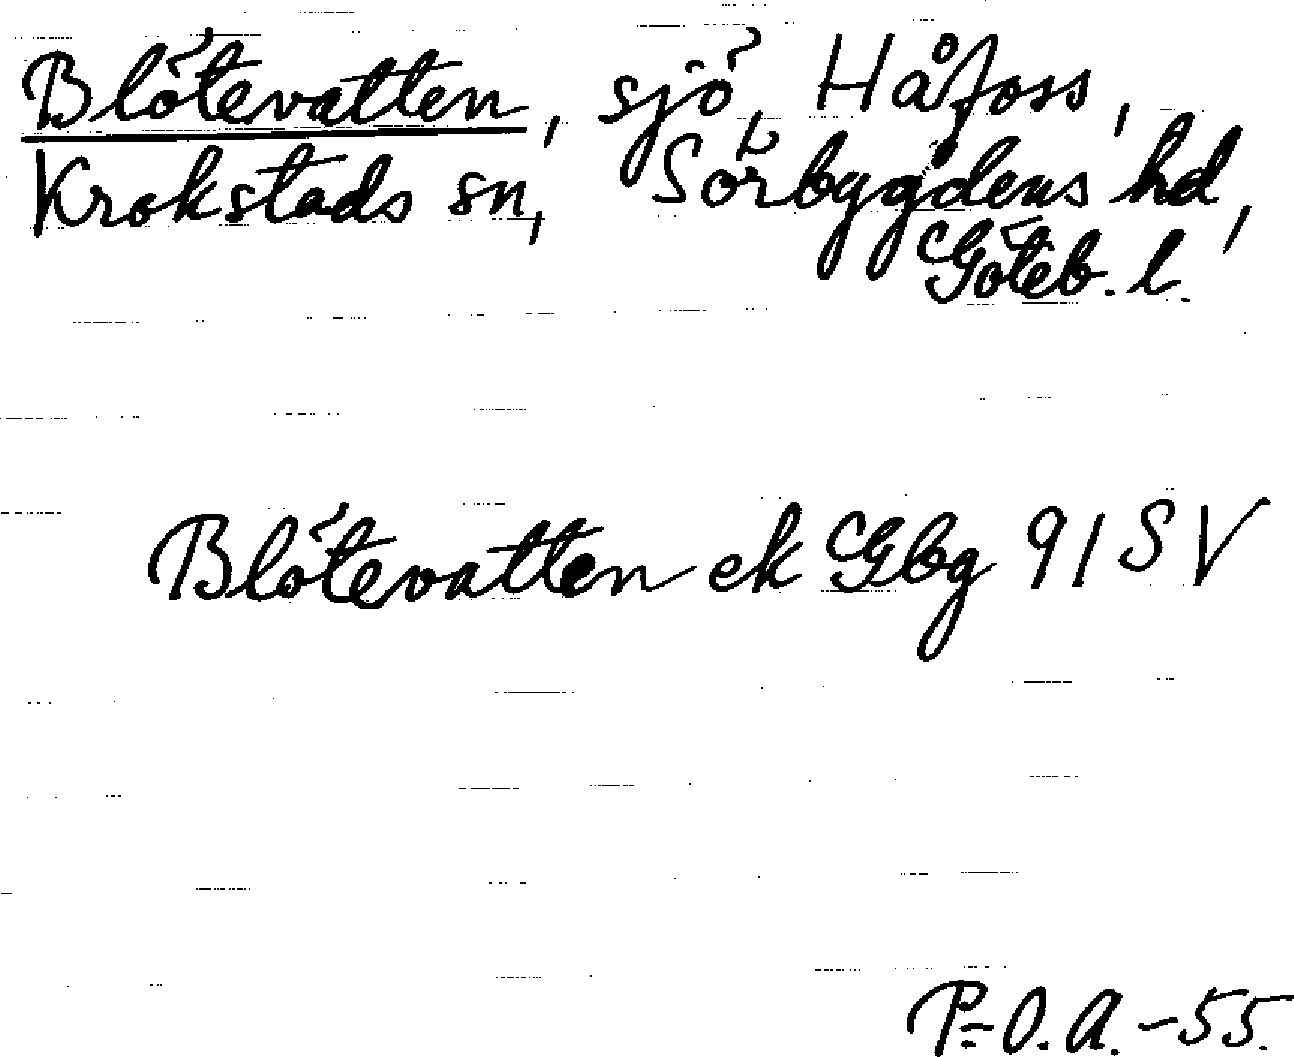 Blötevatten, sjö, Håfoss,
Krokstads sn, Sörbygdens hd,
Göteb. l.
Blötevatten ek Gbg 91 SV
P.-O. A. -55.